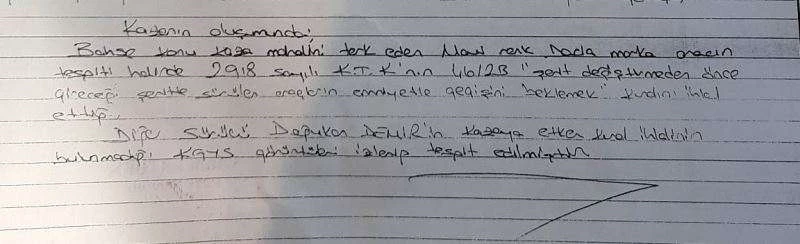 Kazanın oluşumunda;
Bahse konu kaza mahalini terk eden Mavi renk Dacia marka aracın
tespiti halinde 2918 sayılı K.T.K'nın 46/2B "şerit değiştirmeden önce
gireceği şeritte sürülen araçların emniyetle geçişini beklemek" kuralını ihlal
ettiği,
Diğer sürücü Doğukan DEMİR'in kazaya etken kural ihlalinin
bulunmadığı KGYS görüntüleri izlenip tespit edilmiştir